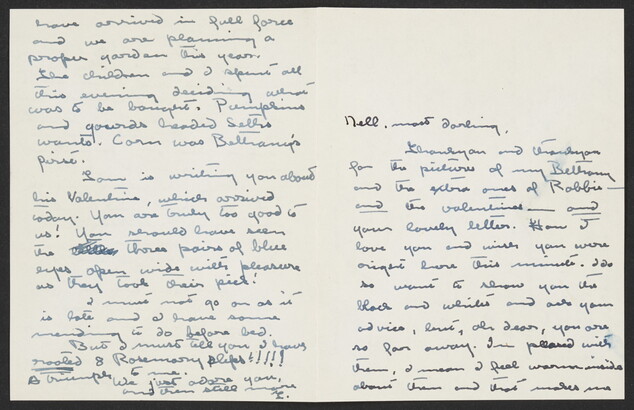 Nell, most darling,
Thankyou and thankyou
for the pictures of my Bettany
and the extra ones of Robbie—
and the valentines — and
your lovely letter. How I
love you and wish you were
right here this minute. I do
so want to show you the
black and whites and ask your
advice, but, oh dear, you are
so far away. I'm pleased with
them, I mean I feel warm inside
about them and that makes me
have arrived in full force
and we are planning a
proper garden this year.
The children and I spent all
this evening deciding what
was to be bought. Pumpkins
and gourds headed Seth's
wants. Corn was Bethany's
first.
Sam is writing you about
his Valentine, which arrived
today. You are truly too good to
us! You should have seen
the three pairs of blue
eyes open wide with pleasure
as they took their pick!
I must not go on as it
is late and I have some
mending to do before bed.
But I must tell you I have
rooted 8 Rosemary slips!!!!!
A triumph to me.
We just adore you,
and then still more